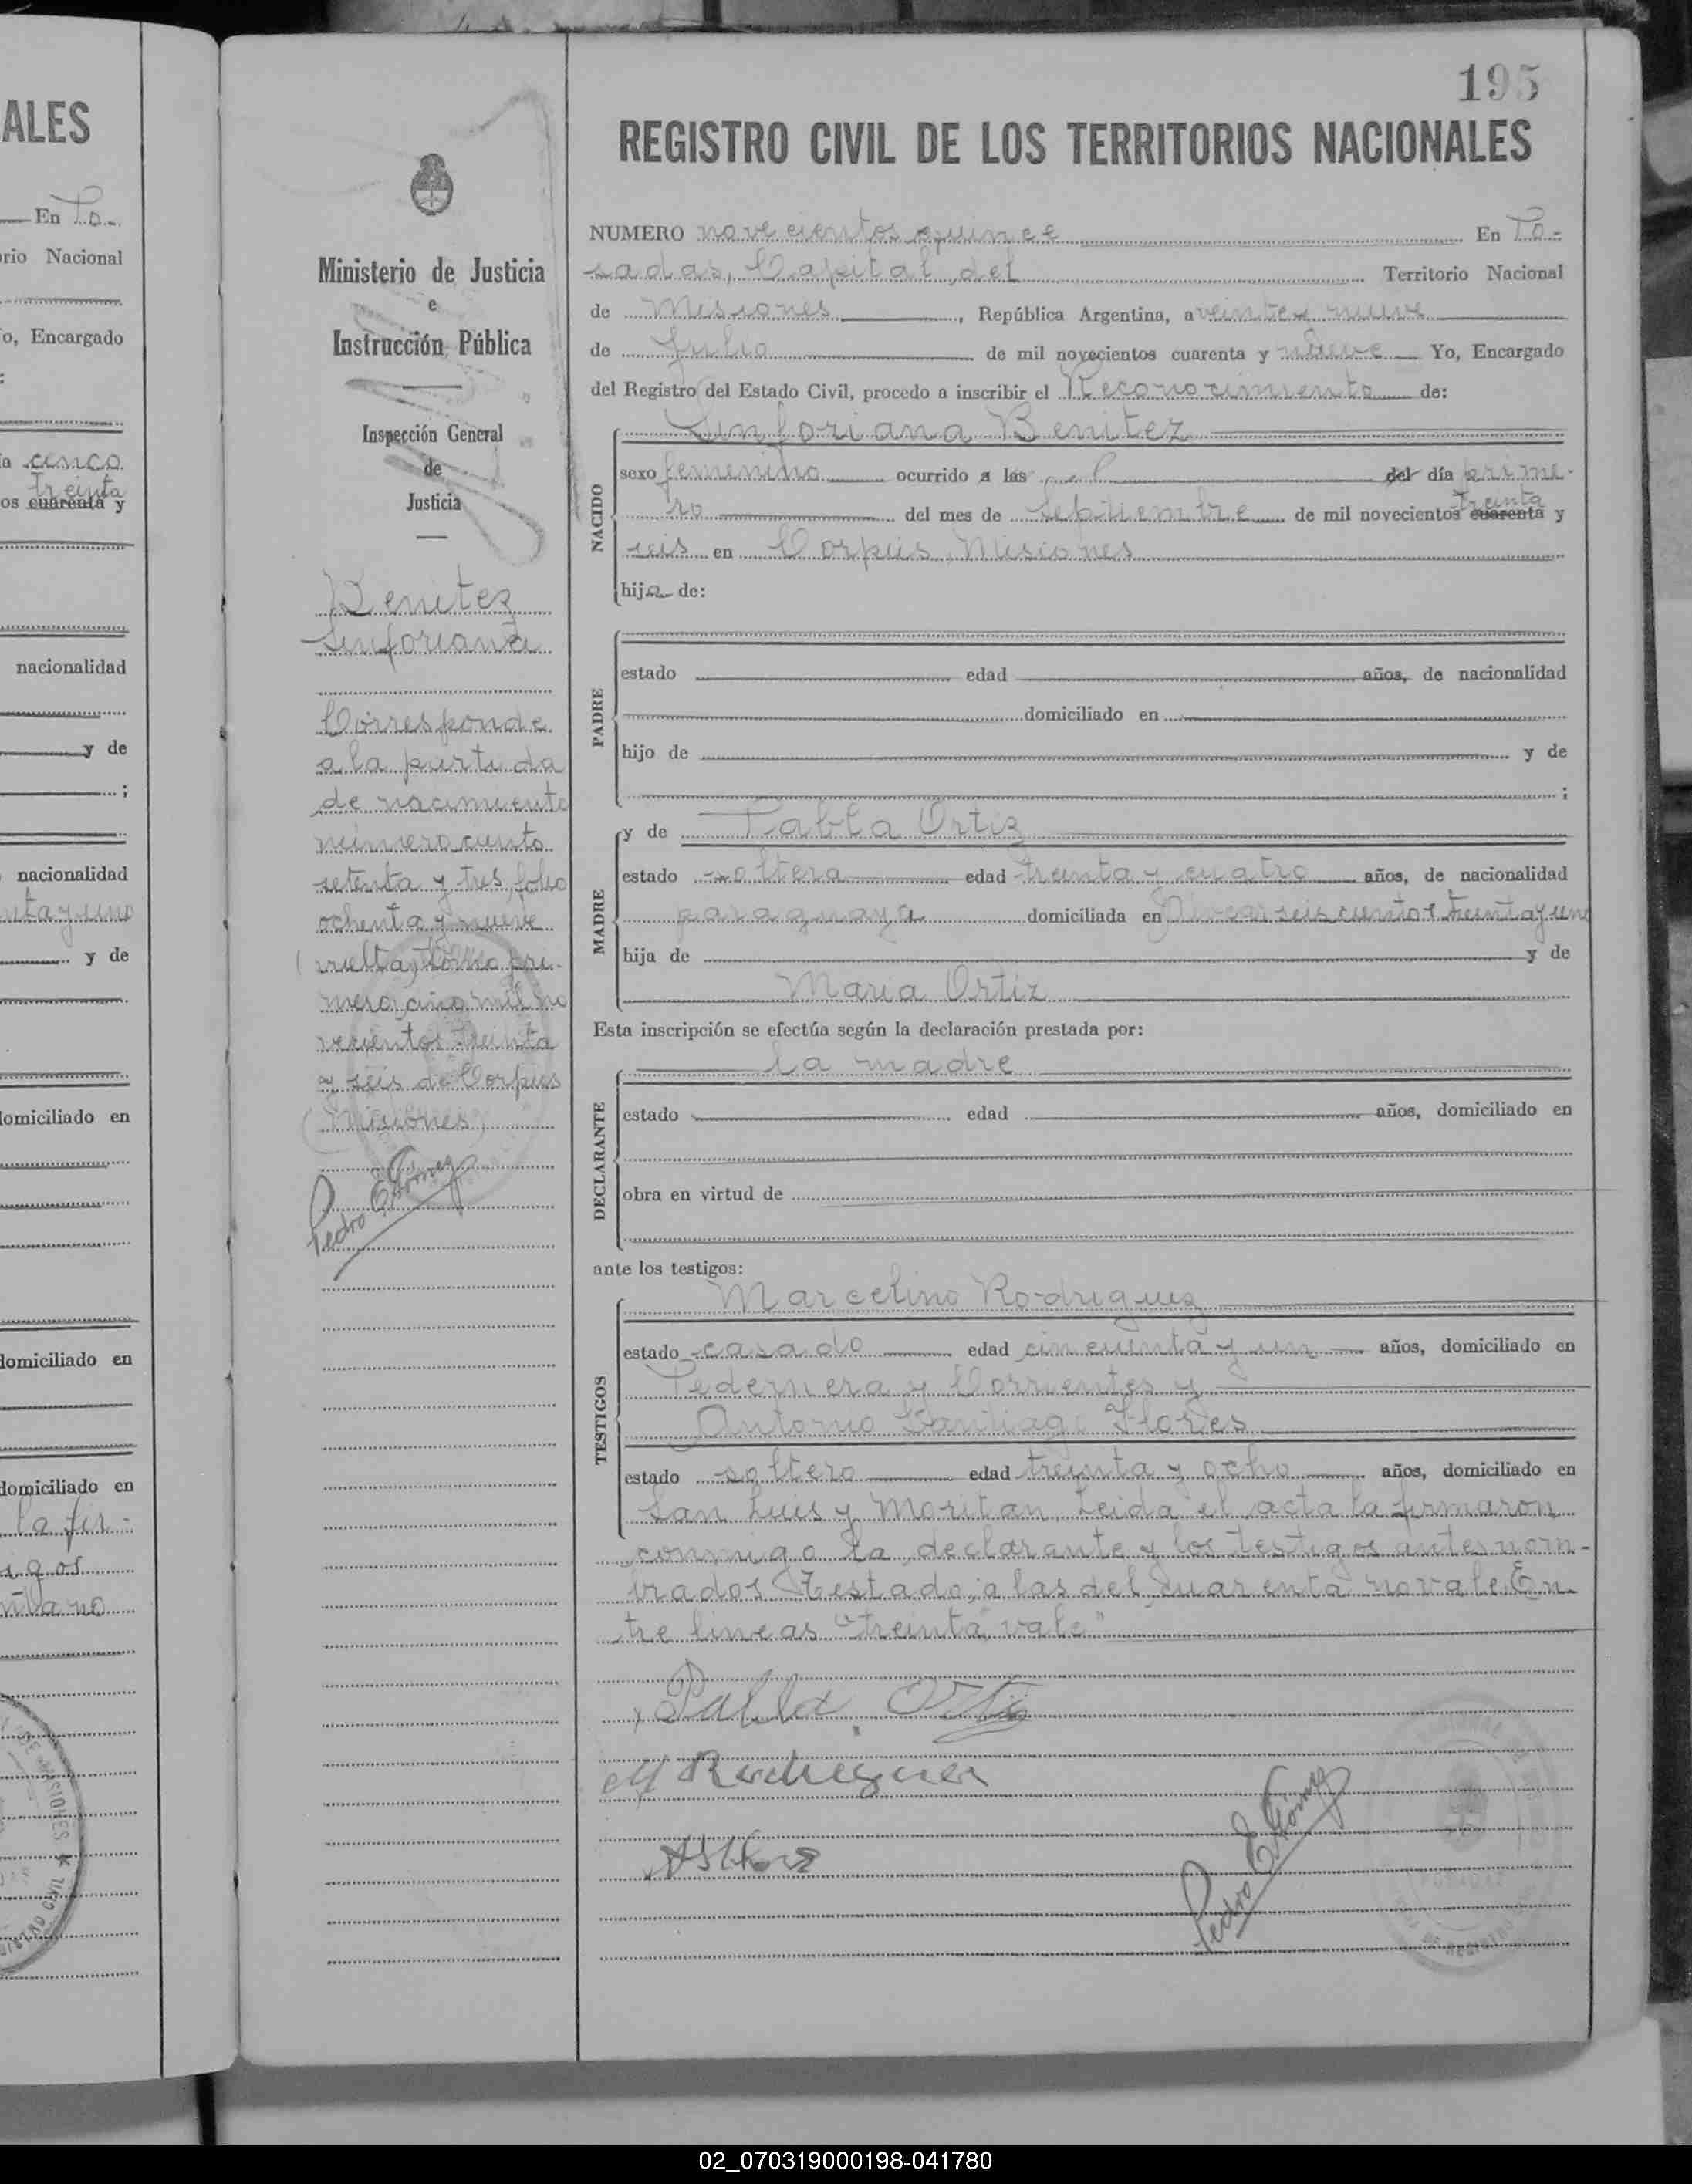 ALES
En Po-
rio Nacional
o, Encargado
a cinco
treinta
os cuarenta y
nacionalidad
y de
;
nacionalidad
nta y uno
y de
domiciliado en
domiciliado en
domiciliado en
la fir-
igos
Ministerio de Justicia
e
Instrucción Pública
Inspección General
de
Justicia
Benitez
Sinforiana
Corresponde
a la partida
de nacimiento
número ciento
setenta y tres, folio
ochenta y nueve
(vuelta) tomo pri-
mero, año mil no
vecientos treinta
y seis de Corpus
(Misiones)
Pedro E Gomez
195
REGISTRO CIVIL DE LOS TERRITORIOS NACIONALES
NUMERO novecientos quince En Po-
sadas, Capital del Territorio Nacional
de Misiones, República Argentina, a veinte y nueve
de Julio de mil novecientos cuarenta y nueve Yo, Encargado
del Registro del Estado Civil, procedo a inscribir el Reconocimiento de:
Sinforiana Benitez
NACIDO
sexo femenino ocurrido a las el del día prime-
treinta
ro del mes de Septiembre de mil novecientos cuarenta y
seis en Corpus, Misiones
hija de:
PADRE
estado edad años, de nacionalidad
domiciliado en
hijo de y de
;
MADRE
y de Pabla Ortiz
estado soltera edad treinta y cuatro años, de nacionalidad
paraguaya domiciliada en seis cientos treinta y uno
hija de y de
Maria Ortiz
Esta inscripción se efectúa según la declaración prestada por:
la madre
DECLARANTE
estado edad años, domiciliado en
obra en virtud de
ante los testigos:
TESTIGOS
Marcelino Rodriguez
estado casado edad cincuenta y un años, domiciliado en
Pedernera y Corrientes y
Antonio Santiago Flores
estado soltero edad treinta y ocho años, domiciliado en
San Luis y Moritan, Leida el acta la firmaron
conmigo la declarante y los testigos antes nom-
brados Testado; a las del cuarenta no vale. En-
tre lineas "treinta vale"
Pabla Ortiz
M Rodriguez
A S Flores
Pedro E Gomez
02_070319000198-041780